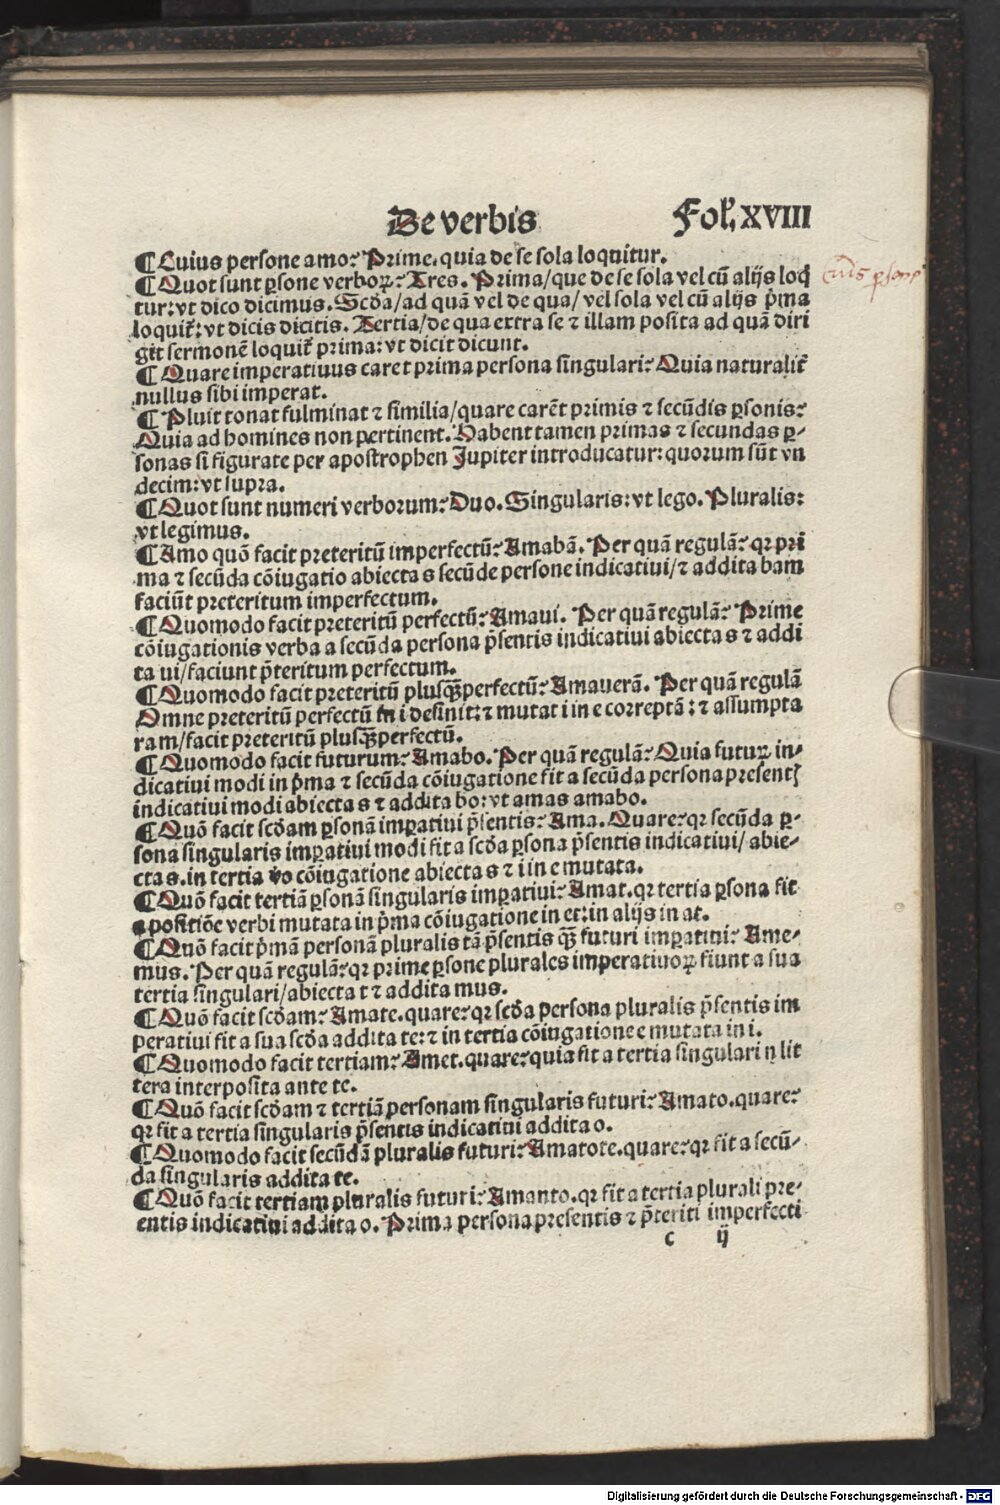 De verbis Fol. XVIII
¶ Cuius persone amo? Prime. quia de se sola loquitur.
¶ Quot sunt ꝑsone verboꝝ? Tres. Prima/que de se sola vel cū alijs loq̄
tur: vt dico dicimus. Scd̄a/ad quā vel de qua/vel sola vel cū alijs p̄ma
loquit̄: vt dicis dicitis. Tertia/de qua extra se ⁊ illam posita ad quā diri
git sermonē loquit̄ prima: vt dicit dicunt.
¶ Quare imperatiuus caret prima persona singulari? Quia naturalit̄
nullus sibi imperat.
¶ Pluit tonat fulminat ⁊ similia/quare carēt primis ⁊ secūdis ꝑsonis?
Quia ad homines non pertinent. Habent tamen primas ⁊ secundas ꝑ-
sonas si figurate per apostrophen Jupiter introducatur: quorum sūt vn
decim: vt supra.
¶ Quot sunt numeri verborum? Duo. Singularis: vt lego. Pluralis:
vt legimus.
¶ Amo quō facit preteritū imperfectū? Amabā. Per quā regulā? qꝛ pri
ma ⁊ secūda cōiugatio abiecta s secūde persone indicatiui/⁊ addita bam
faciūt preteritum imperfectum.
¶ Quomodo facit preteritū perfectū? Amaui. Per quā regulā? Prime
cōiugationis verba a secūda persona p̄sentis indicatiui abiecta s ⁊ addi
ta ui/faciunt p̄teritum perfectum.
¶ Quomodo facit preteritū plusqꝫperfectū? Amauerā. Per quā regulā
Omne preteritū perfectū in i desinit: ⁊ mutat i in e correptā: ⁊ assumpta
ram/facit preteritū plusqꝫperfectū.
¶ Quomodo facit futurum? Amabo. Per quā regulā? Quia futuꝝ in-
dicatiui modi in p̄ma ⁊ secūda cōiugatione fit a secūda persona presentꝭ
indicatiui modi abiecta s ⁊ addita bo: vt amas amabo.
¶ Quō facit scd̄am ꝑsonā imꝑatiui p̄sentis? Ama. Quare? qꝛ secūda ꝑ-
sona singularis imꝑatiui modi fit a scd̄a ꝑsona p̄sentis indicatiui/abie-
cta s. in tertia v̄o cōiugatione abiecta s ⁊ i in e mutata.
¶ Quō facit tertiā ꝑsonā singularis imꝑatiui? Amat. qꝛ tertia ꝑsona fit
a positiōe verbi mutata in p̄ma cōiugatione in et: in alijs in at.
¶ Quō facit p̄mā personā pluralis tā p̄sentis qꝫ futuri imꝑatiui? Ame-
mus. Per quā regulā? qꝛ prime ꝑsone plurales imperatiuoꝝ fiunt a sua
tertia singulari/abiecta t ⁊ addita mus.
¶ Quō facit scd̄am? Amate. quare? qꝛ scd̄a persona pluralis p̄sentis im
peratiui fit a sua scd̄a addita te: ⁊ in tertia cōiugatione e mutata in i.
¶ Quomodo facit tertiam? Amet. quare? quia fit a tertia singulari n lit
tera interposita ante te.
¶ Quō facit scd̄am ⁊ tertiā personam singularis futuri? Amato. quare?
qꝛ fit a tertia singularis p̄sentis indicatiui addita o.
¶ Quomodo facit secūdā pluralis futuri? Amatote. quare? qꝛ fit a secū-
da singularis addita te.
¶ Quō facit tertiam pluralis futuri? Amanto. qꝛ fit a tertia plurali pre-
entis indicatiui addita o. Prima persona presentis ⁊ p̄teriti imperfecti
c ij
Digitalisierung gefördert durch die Deutsche Forschungsgemeinschaft - DFG